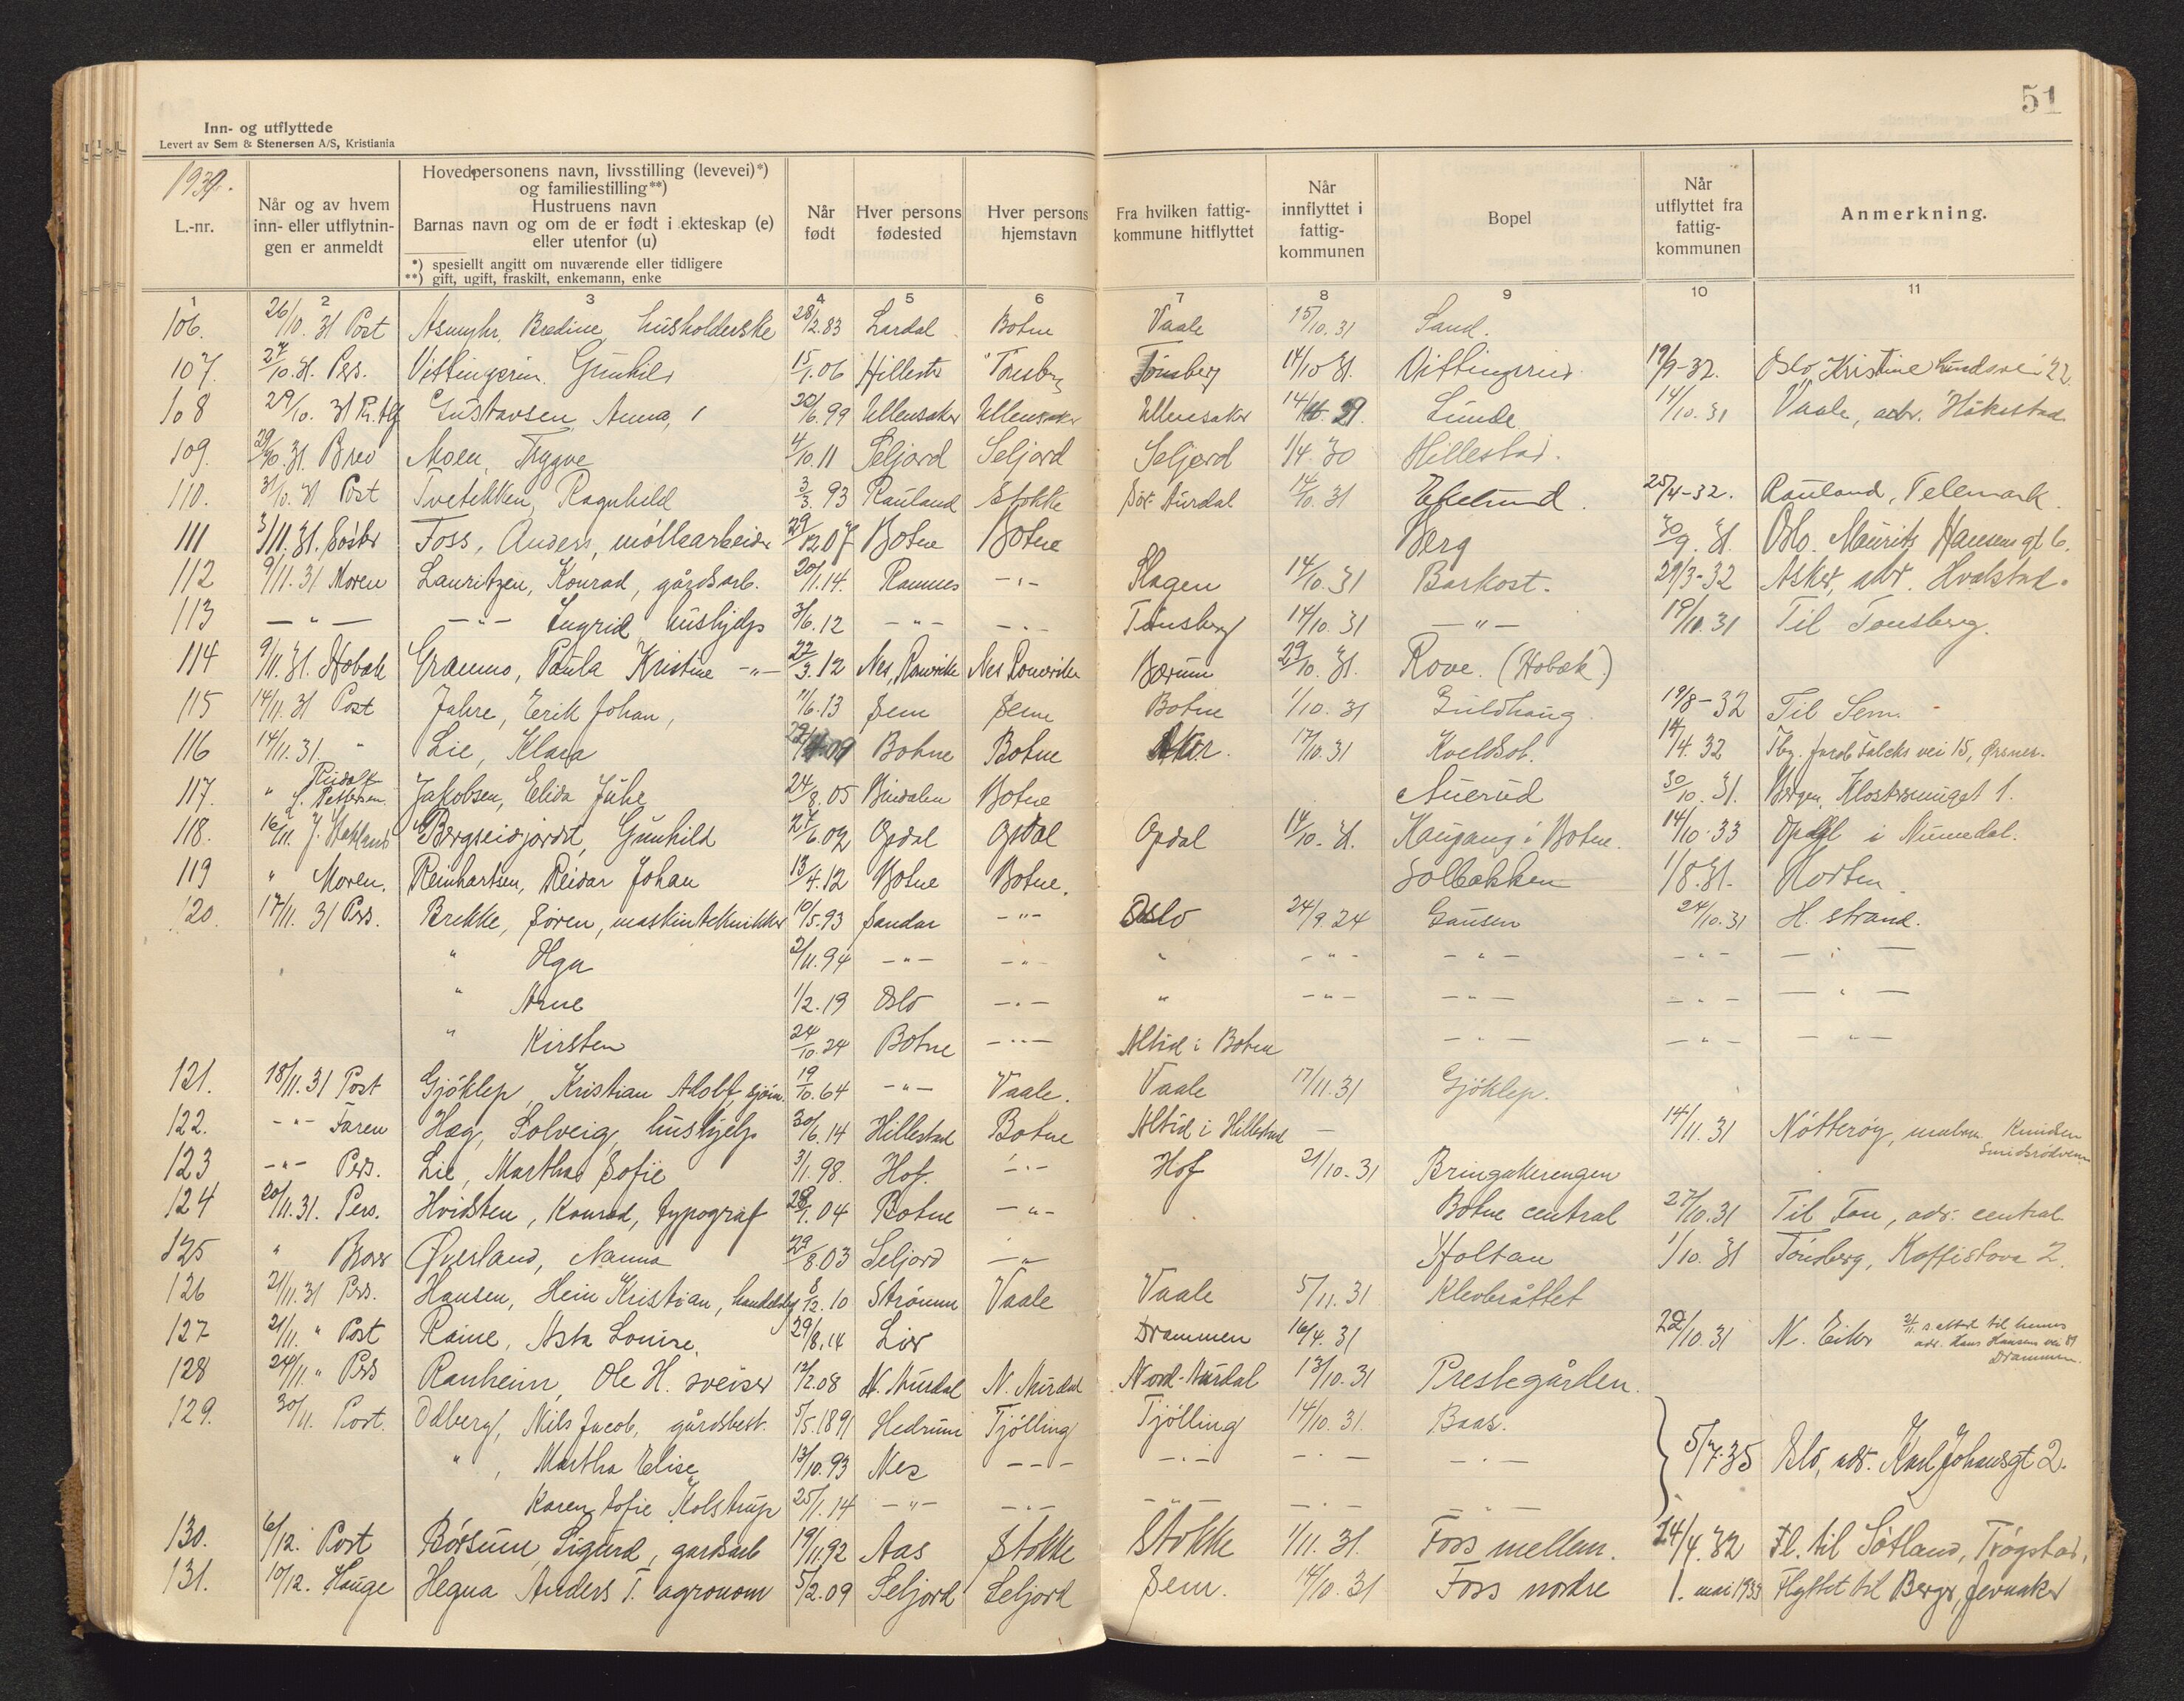 51
Inn- og utflyttede
Levert av Sem & Stenersen A/S, Kristiania
L.-nr.
Når og av hvem inn- eller utflytnin-gen er anmeldt
Hovedpersonens navn, livsstilling (levevei)*) og familiestilling**) Hustruens navn Barnas navn og om de er født i ekteskap (e) eller utenfor (u)
*) spesiellt angitt om nuværende eller tidligere
**) gift, ugift, fraskilt, enkemann, enke
Når født
Hver persons fødested
Hver persons hjemstavn
Fra hvilken fattig-kommune hitflyttet
Når innflyttet i fattig-kommunen
Bopel
Når utflyttet fra fattig-kommunen
Anmerkning.
1 2 3 4 5 6 7 8 9 10 11
106. 26/10. 31 Post Bredine husholderske 28/12.83 Lardal Botne Vaale 15/10.31 Sand.
107. 27/10.31. Pers. Gunhild 15/1.06 Tønsberg 14/10 31. 19/9-32. Oslo, Kristine Lundsvei 22
108 29/10. 31 Gustavsen Anna, 30/6.99 Ullensaker Ullensaker Ullensaker Lunde 14/10.31 Vaale, adr. Håkestad.
109. 29/10.31. Brev Moen, Trygve 4/10.11 Seljord Seljord Seljord 1/4.30 Hillestad.
110. 31/10.31 Post Ragnhild 3/3.93 Rauland Stokke Sør Aurdal 14/10.31 Ekelund. 25/4-32. Rauland, Telemark
111 3/11.31. Foss, Anders, møllearbeider 29/12.07 Botne Botne Berg 30/9.31. Oslo. Maurits Hansens gt 6.
112 9/11.31 Moren Lauritzen, Konrad, gårdsarb. 20/1.14. Ramnes -"- Slagen 14/10.31 Barkost. 29/3-32 Asker, adr. Hvalstad.
113 -"- -"- Ingrid hushjelp 3/6.12 -"- -"- Tønsberg 14/10.31 -"- 19/10.31 Til Tønsberg.
114 9/11.31. Hobæk Gramno, Paula Kristine -"- 22/3.12 Nes, Romerike Nes Romerike Bærum 29/10.31. Rove. (Hobæk)
115 14/11.31 Post Jahre, Erik Johan, 11/6.13 Sem Sem Botne 1/10.31 Guldhaug. 19/8-32 Til Sem.
116 14/11.31. " Lie, Klara Botne Botne Aker. 17/10.31 Kveldsol. 14/4.32 Tbg. Jarlsb vei 15,
117. " Jakobsen, Elida Juhe 24/8.05 Botne Auerød 30/10.31. Bergen, 1.
118. 16/11. Bergseidjordet, Gunhild 27/6.02 Opdal Opdal Opdal 14/10.31. Haugang i Botne. 14/10.33 Opdal i Numedal.
119 " Moren. Reinhartsen, Reidar Johan 13/4.12 Botne Botne. Solbakken 1/8.31. Horten.
120. 17/11.31 Pers. Brekke, Søren, maskintekniker 19/5.93 Sandar -"- Oslo 24/9.24 Gausen 24/10.31 H. strand.
" Olga 2/11.94 -"- -"- " -"- -"- -"- -"-
" Arne 1/2.19 Oslo -"- " -"- -"- -"- -"-
" Kirsten 24/10.24 Botne -"- Altid i Botne -"- -"- -"-
121. 18/11.31 Post Gjøklep, Kristian Adolf, sjøm. 19/10.64 -"- Vaale. Vaale 17/11.31 Gjøklep.
122. -"- Faren Hag, Solveig, hushjelp 30/6.14 Hillestad Botne Altid i Hillestad - 14/11.31 Nøtterøy, Knudsen
123 -"- Pers. Lie, Marthas Sofie 3/1.98. Hof. -"- Hof 21/10-31 Bringakerengen
124 20/11.31. Pers. Hvidsten, Konrad, typograf 28/1.04 Botne -"- Botne central 27/10.31 Til Fon, adr. central
125 " Øverland, Nanna 29/8.03 Seljord -"- Holtan 1/10.31 Tønsberg, Kaffistova 2.
126 21/11.31 Pers. Hansen, Hein Kristian, 8/12.10 Strømm Vaale Vaale 5/11.31 Klevbråttet
127 21/11. " Post Raine, Asta Louise. 29/8.14 Lier Drammen 16/4.31 22/10.31 N. Eiker Drammen.
128 24/11. " Pers Ranheim, Ole H. sveiser 12/2.08 N. Aurdal N. Aurdal Nord-Aurdal 13/10.31 Prestegården.
129. 30/11. Post. Odberg, Nils Jacob, gårdsbest. 5/5.1891 Hedrum Tjølling Tjølling 14/10.31. Baas.
" , Martha Elise 13/10.93 Nes -"- -"- -"- -"- 5/7.35 Oslo, adr. Karl Johansgt 2.
Karen Sofie Kolstrup 25/1.14 -"- -"- -"- -"- -"-
130. 6/12. Post Børsum, Sigurd, gardsarb 19/11.92 Aas Stokke Stokke 1/11.31. Foss mellem. 24/4.32 Fl. til Søtland, Trøgstad.
131. 10/12. Hauge Hegna Anders T. agronom 5/2.09 Seljord Seljord Sem. 14/10.31 Foss nordre 1. mai 1933 Flyttet til Berger, Jevnaker